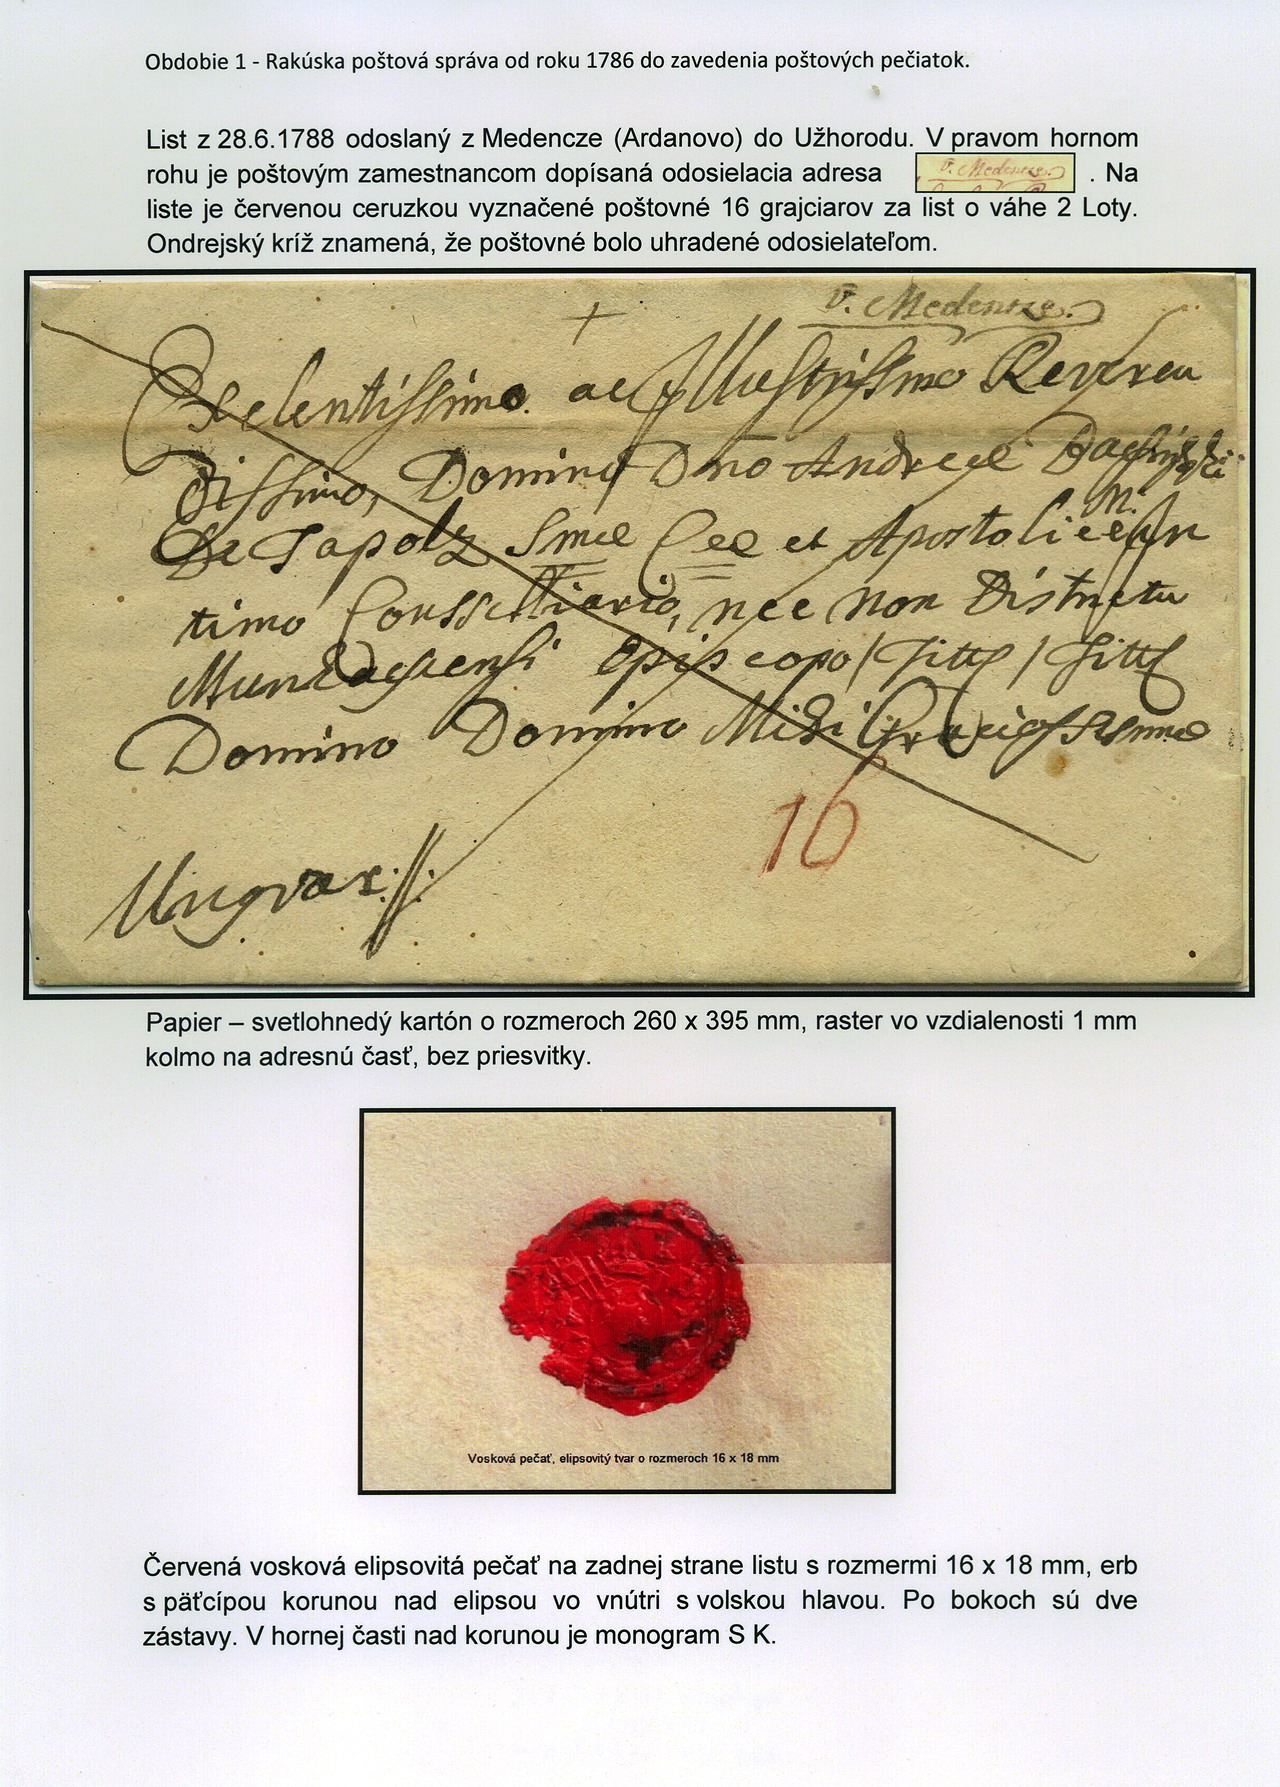 Obdobie 1 - Rakúska poštová správa od roku 1786 do zavedenia poštových pečiatok.
List z 28.6.1788 odoslaný z Medencze (Ardanovo) do Užhorodu. V pravom hornom
rohu je poštovým zamestnancom dopísaná odosielacia adresa v. Medencze. . Na
liste je červenou ceruzkou vyznačené poštovné 16 grajciarov za list o váhe 2 Loty.
Ondrejský kríž znamená, že poštovné bolo uhradené odosielateľom.
v. Medencze.
Exelentissimo ac Illustrissimo Reveren
dissimo, Domino Dno Andreae
De Tapolz et Apostolice In
timo Conssiliario, nec non Districtu
Munkacsiensi Episcopo / Titt / Titt
Domino Domino Mihi Graciosissimo
16
Ungvar
Papier – svetlohnedý kartón o rozmeroch 260 x 395 mm, raster vo vzdialenosti 1 mm
kolmo na adresnú časť, bez priesvitky.
Vosková pečať, elipsovitý tvar o rozmeroch 16 x 18 mm
Červená vosková elipsovitá pečať na zadnej strane listu s rozmermi 16 x 18 mm, erb
s päťcípou korunou nad elipsou vo vnútri s volskou hlavou. Po bokoch sú dve
zástavy. V hornej časti nad korunou je monogram S K.